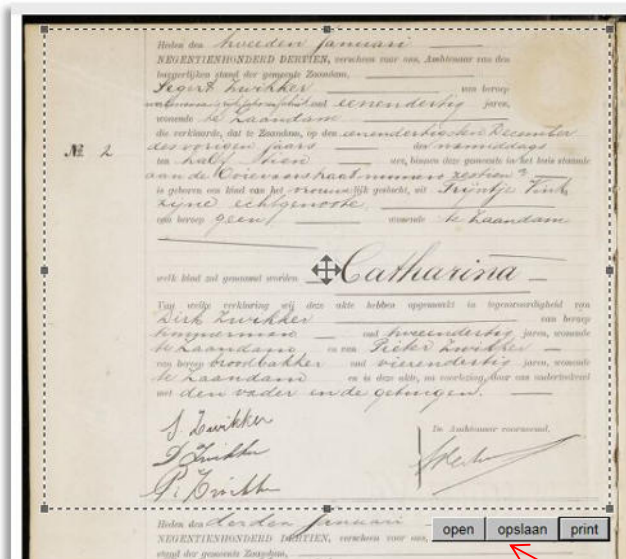 Heden den tweeden Januari
NEGENTIENHONDERD DERTIEN, verscheen voor ons, Ambtenaar van den
burgerlijken stand der gemeente Zaandam,
Segert Zwikker van beroep
oud eenendertig jaren,
wonende te Zaandam
die verklaarde, dat te Zaandam, op den eenendertigsten December
des vorigen jaars des namiddags
ten half tien ure, binnen deze gemeente in het huis staande
aan de straat nummer zestien
is geboren een kind van het vrouwelijk geslacht, uit Trijntje Vink
zijne echtgenoote,
van beroep geen, wonende te Zaandam
№ 2
welk kind zal genaamd worden Catharina
Van welke verklaring wij deze akte hebben opgemaakt in tegenwoordigheid van
Dirk Zwikker van beroep
timmerman oud tweeendertig jaren, wonende
te Zaandam en van Pieter Zwikker
van beroep broodbakker oud vierendertig jaren, wonende
te Zaandam en is deze akte, na voorlezing, door ons onderteekend
met den vader en de getuigen.
S. Zwikker
D Zwikker
P. Zwikker
De Ambtenaar voornoemd,
Heden den derden Januari
NEGENTIENHONDERD DERTIEN, verscheen voor ons,
stand der gemeente Zaandam,
open opslaan print